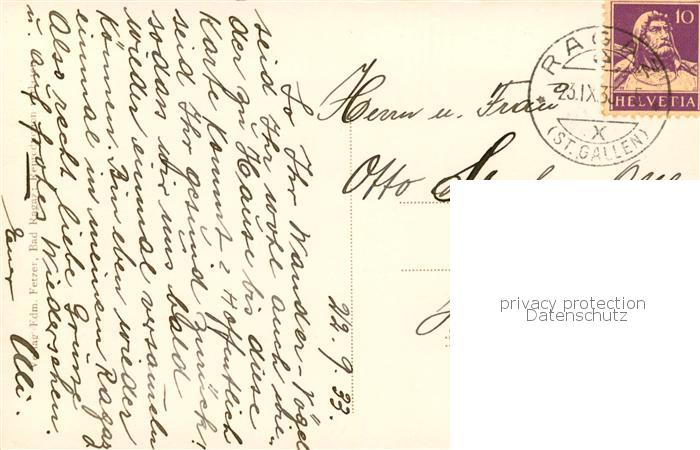 22. 9. 33.
So Ihr Wander-Vögel
seid Ihr wohl auch wie-
der zu Hause bis diese
Karte kommt? Hoffentlich
seid Ihr gesund zurück!
sodass wir uns bald
wieder einmal versammeln
können. Bin eben wieder
einmal in meinem Ragaz
Also recht liebe Grüsse
u. auf frohes Wiedersehen.
Euer
Verlag Edm. Fetzer, Bad Ragaz
Herrn u. Frau
Otto
RAGAZ
23.IX.33
X
(ST. GALLEN)
10
HELVETIA
privacy protection
Datenschutz